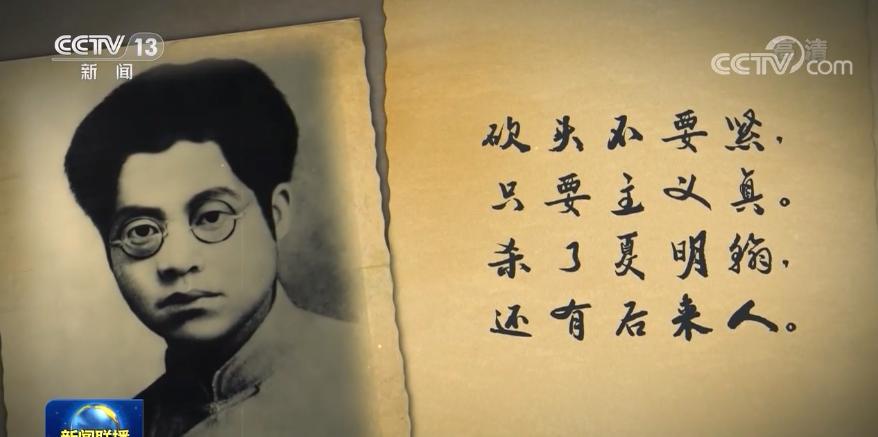 CCTV 13
新闻
高清
CCTV.com
砍头不要紧，
只要主义真。
杀了夏明翰，
还有后来人。
新闻联播